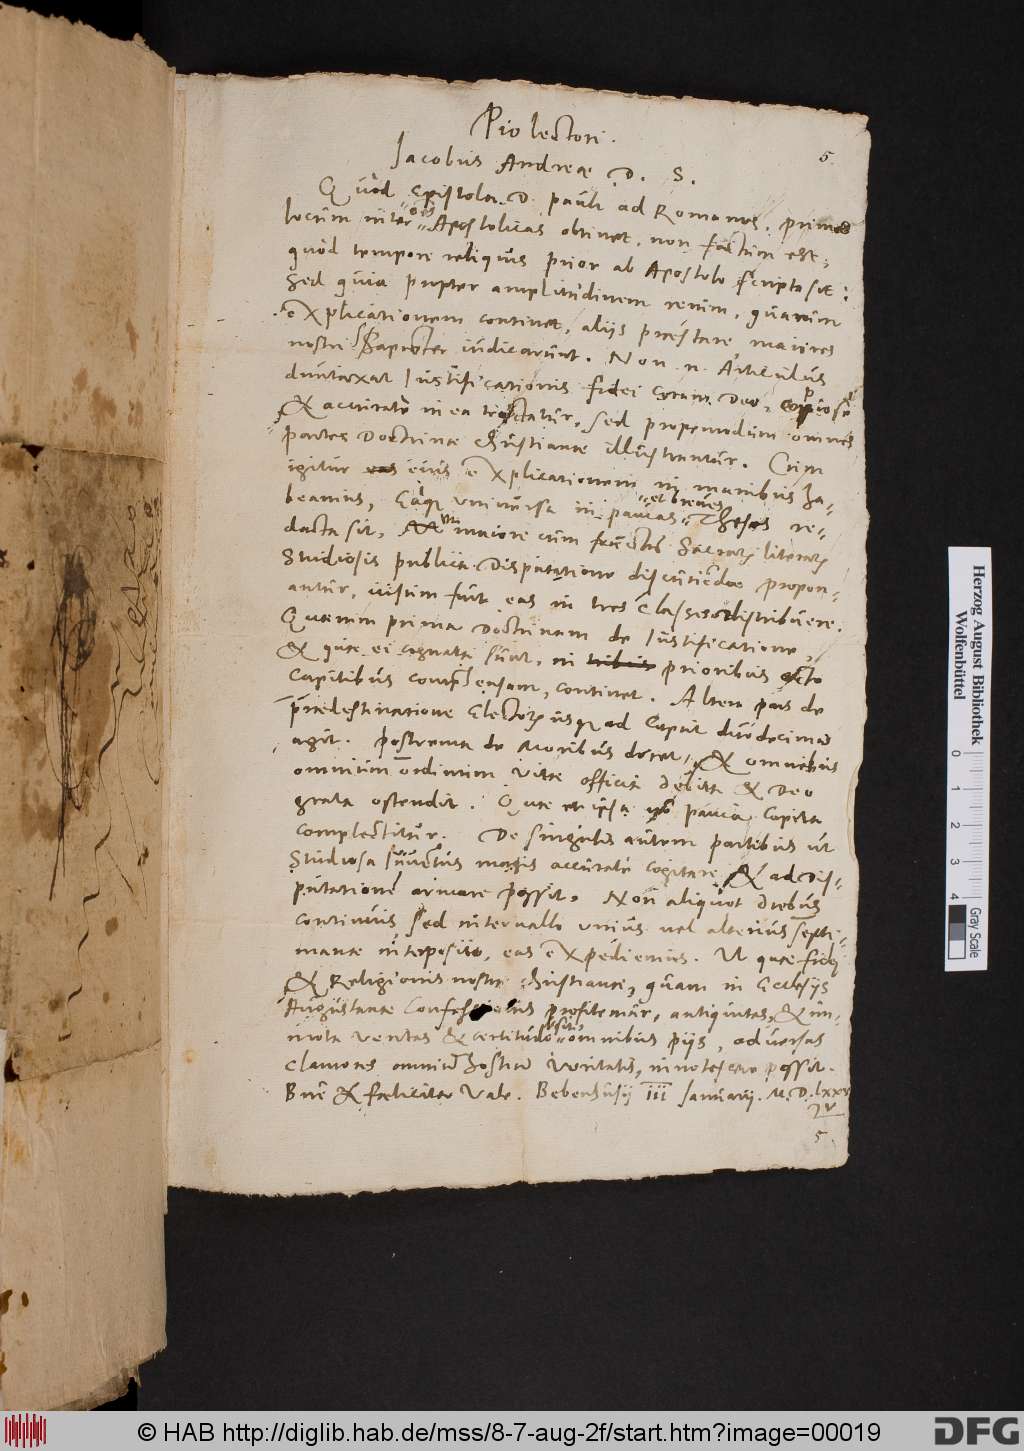 5.
Pio lectori.
Jacobus Andreæ D. S.
Quòd Epistola D. Pauli ad Romanos, primũ
locum inter Apostolicas obtinet, non factum est,
quòd tempore reliquis prior ab Apostolo scripta sit:
Sed quia propter amplitudinem rerum, quarum
explicationem continet, aliis præstare maiores
nostri sapienter iudicarunt. Non n. Articulus
duntaxat Iustificationis fidei coram Deo, copiosè
& accuratè in ea tractatur, sed propemodum omnes
partes Doctrinæ christianæ illustrantur. Cùm
igitur eius explicationem in manibus ha-
beamus, eaq universa in paucas et breves Theses re-
dacta sit, maiore cum fructu Sacrarũ literarũ
Studiosis publica Disputatione discutiendæ propon-
antur, visum fuit eas in tres Classes distribuere.
Quarum prima Doctrinam de Iustificatione,
& quæ ei cognata sunt, in prioribus octo
Capitibus comprehensam, continet. Altera pars de
prædestinatione Electorũ usq ad Caput duodecimũ
agit. Postrema de Moribus docet, & omnibus
omnium ordinum vitæ officia debita & Deo
grata ostendit. Quæ et ipsa pauca Capita
complectitur. De singulis autem partibus ut
Studiosa Iuventus magis accuratè cogitare, & ad Dis-
putationẽ armare possit, Non aliquot diebus
continuis, sed intervallo unius vel alterius septi-
manæ interposito, eas expediemus. Ut quæ fidei
& Religionis nostræ christianæ, quam in Ecclesijs
Augustanæ Confessionis profitemur, antiquitas, & im-
mota veritas & certitudo sit, omnibus pijs, adversus
clamores omniũ hostiũ veritatis, innotescere possit.
Benè & fœliciter Vale. Bebenhusij III Januarij. M.D.lxxv
5.
Herzog August Bibliothek
Wolfenbüttel
0 1 2 3 4
Gray Scale
© HAB http://diglib.hab.de/mss/8-7-aug-2f/start.htm?image=00019
DFG